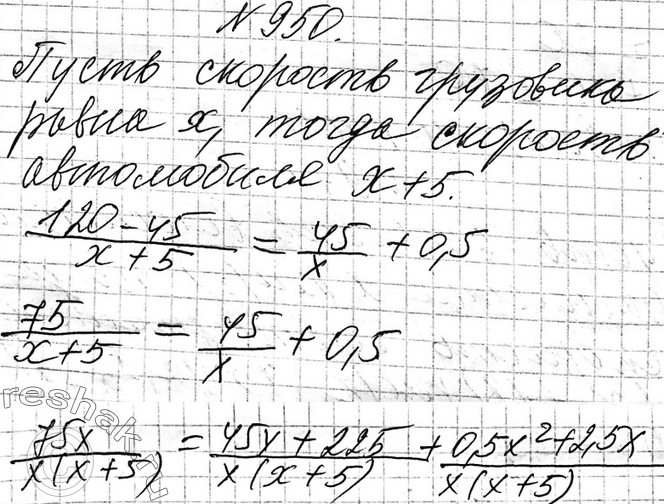 №950.
Пусть скорость грузовика
равна x, тогда скорость
автомобиля x+5.
(120-45)/(x+5) = 45/x + 0,5
75/(x+5) = 45/x + 0,5
75x/(x(x+5)) = (45x+225)/(x(x+5)) + (0,5x²+2,5x)/(x(x+5))
reshak.ru